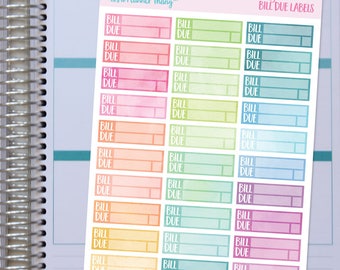 Planner Thang
BILL DUE LABELS
BILL DUE
BILL DUE
BILL DUE
BILL DUE
BILL DUE
BILL DUE
BILL DUE
BILL DUE
BILL DUE
BILL DUE
BILL DUE
BILL DUE
BILL DUE
BILL DUE
BILL DUE
BILL DUE
BILL DUE
BILL DUE
BILL DUE
BILL DUE
BILL DUE
BILL DUE
BILL DUE
BILL DUE
BILL DUE
BILL DUE
BILL DUE
BILL
BILL
BILL